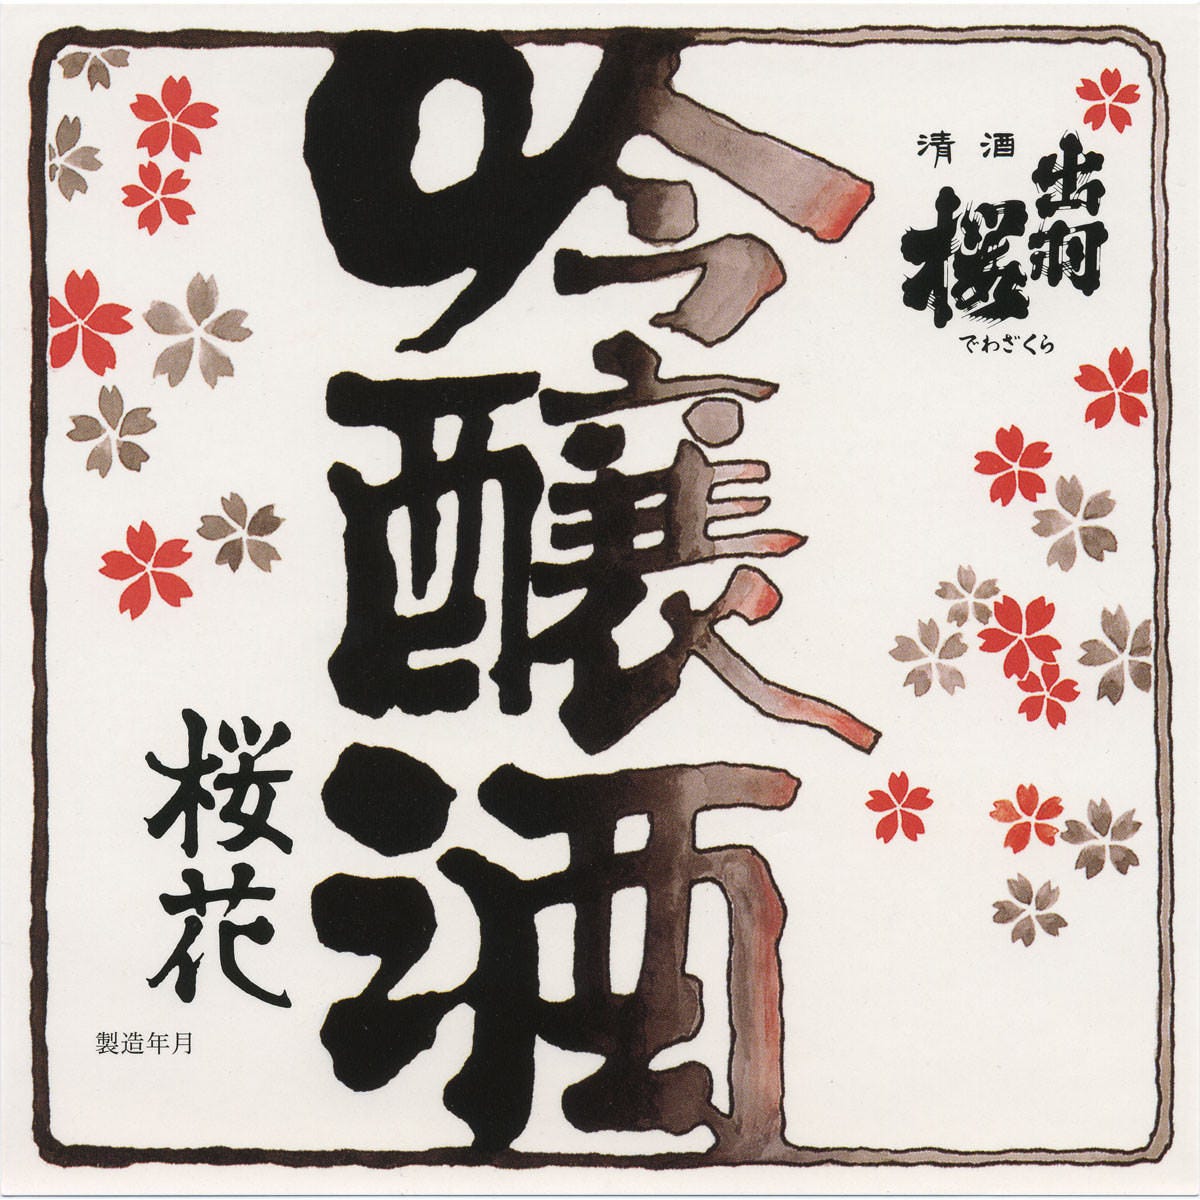 清酒
出羽
桜
でわざくら
吟醸酒
桜花
製造年月